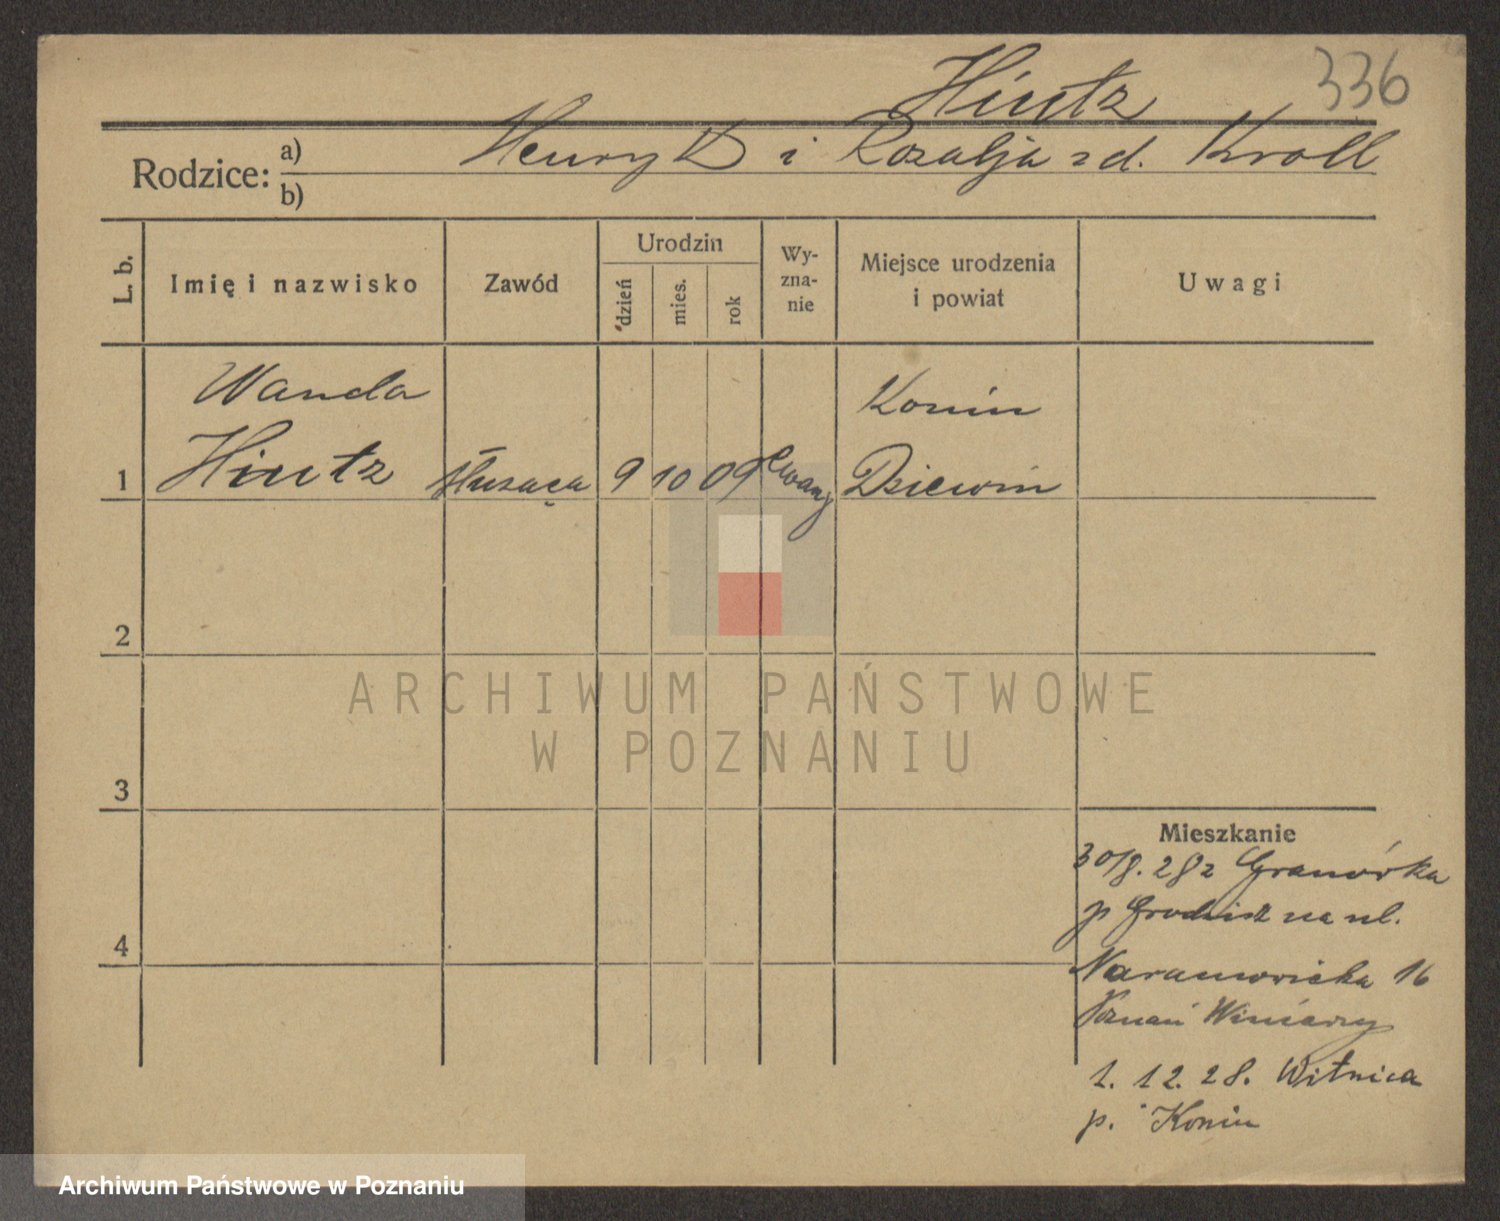 Hintz
336
Rodzice: a) b)
Henryk i Rozalja zd. Kroll
L. b.
Imię i nazwisko
Zawód
Urodzin
dzień
mies.
rok
Wy-
zna-
nie
Miejsce urodzenia
i powiat
Uwagi
Wanda
Konin
1 Hintz służąca 9 10 09 ewang Dziewin
2
3
4
Mieszkanie
30/8. 28 z Granówka
p Grodzisk na ul.
Naramowicka 16
Poznań Winiary
1. 12. 28. Witnica
p. Konin
ARCHIWUM PAŃSTWOWE
W POZNANIU
Archiwum Państwowe w Poznaniu